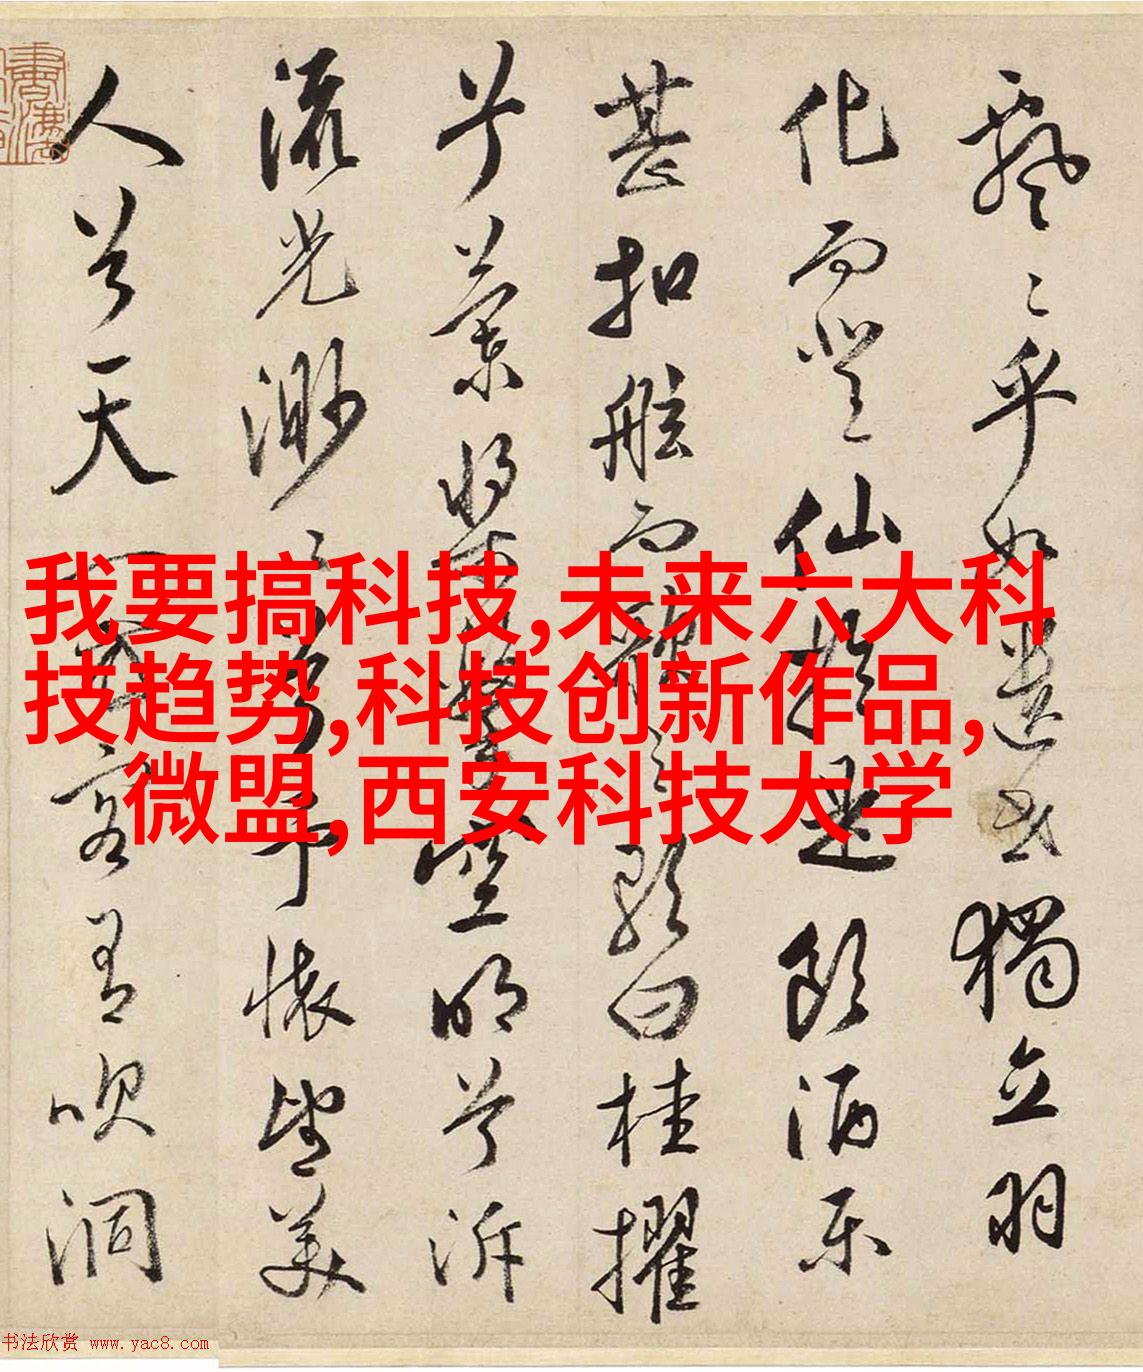 飄〻乎如遺世獨立羽
化而登仙於是飲酒樂
甚扣舷而歌之歌曰桂櫂
兮蘭槳擊空明兮泝
流光渺〻兮予懷望美
人兮天一方客有吹洞
我要搞科技,未来六大科
技趋势,科技创新作品,
微盟,西安科技大学
书法欣赏 www.yac8.com